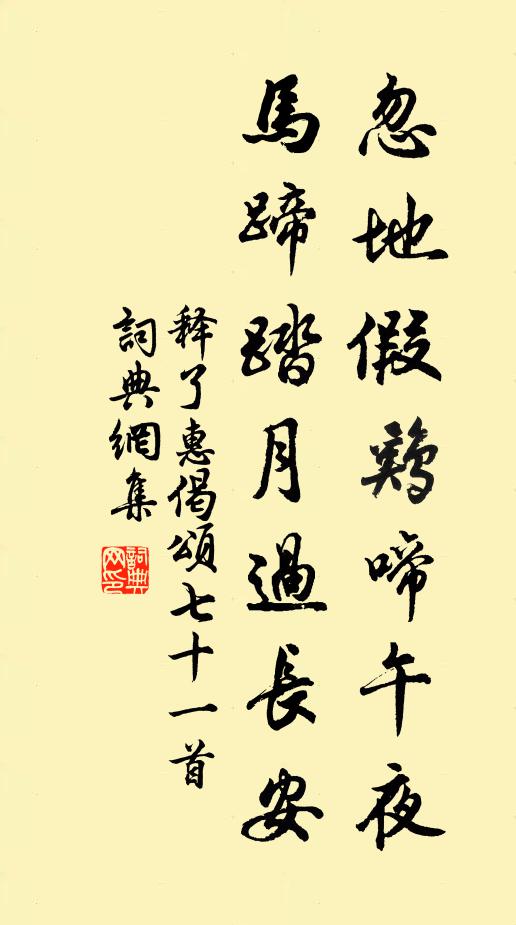 忽地假鷄啼午夜
馬蹄踏月過長安
释了惠偈頌七十一首
詞典網集
詞典
网印